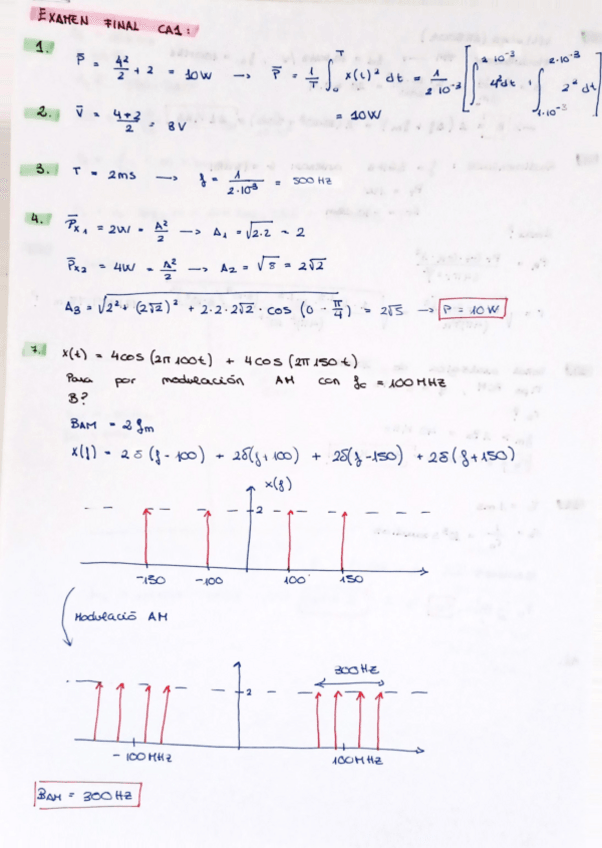 EXAMEN FINAL CA1:
1. P̄ = 4²/2 + 2 = 10W → P̄ = 1/T ∫₀ᵀ x(t)² dt = 1/(2·10⁻³) [∫₀^(2·10⁻³) 4² dt + ∫_(1·10⁻³)^(2·10⁻³) 2² dt]
= 10W
2. V̄ = (4+2)/2 = 3V
3. T = 2ms → f = 1/(2·10⁻³) = 500 Hz
4. P̄x₁ = 2W = A²/2 → A₁ = √(2·2) = 2
P̄x₂ = 4W = A²/2 → A₂ = √8 = 2√2
A₃ = √(2² + (2√2)² + 2·2·2√2 · cos (0 - π/4)) = 2√5 → P = 10W
7. x(t) = 4cos(2π100t) + 4cos(2π150t)
Pasa por modulación AM con fc = 100MHz
B?
BAM = 2fm
X(f) = 2δ(f-100) + 2δ(f+100) + 2δ(f-150) + 2δ(f+150)
x(f)
2
-150 -100 100 150
Modulació AM
300Hz
2
-100MHz 100MHz
BAM = 300Hz